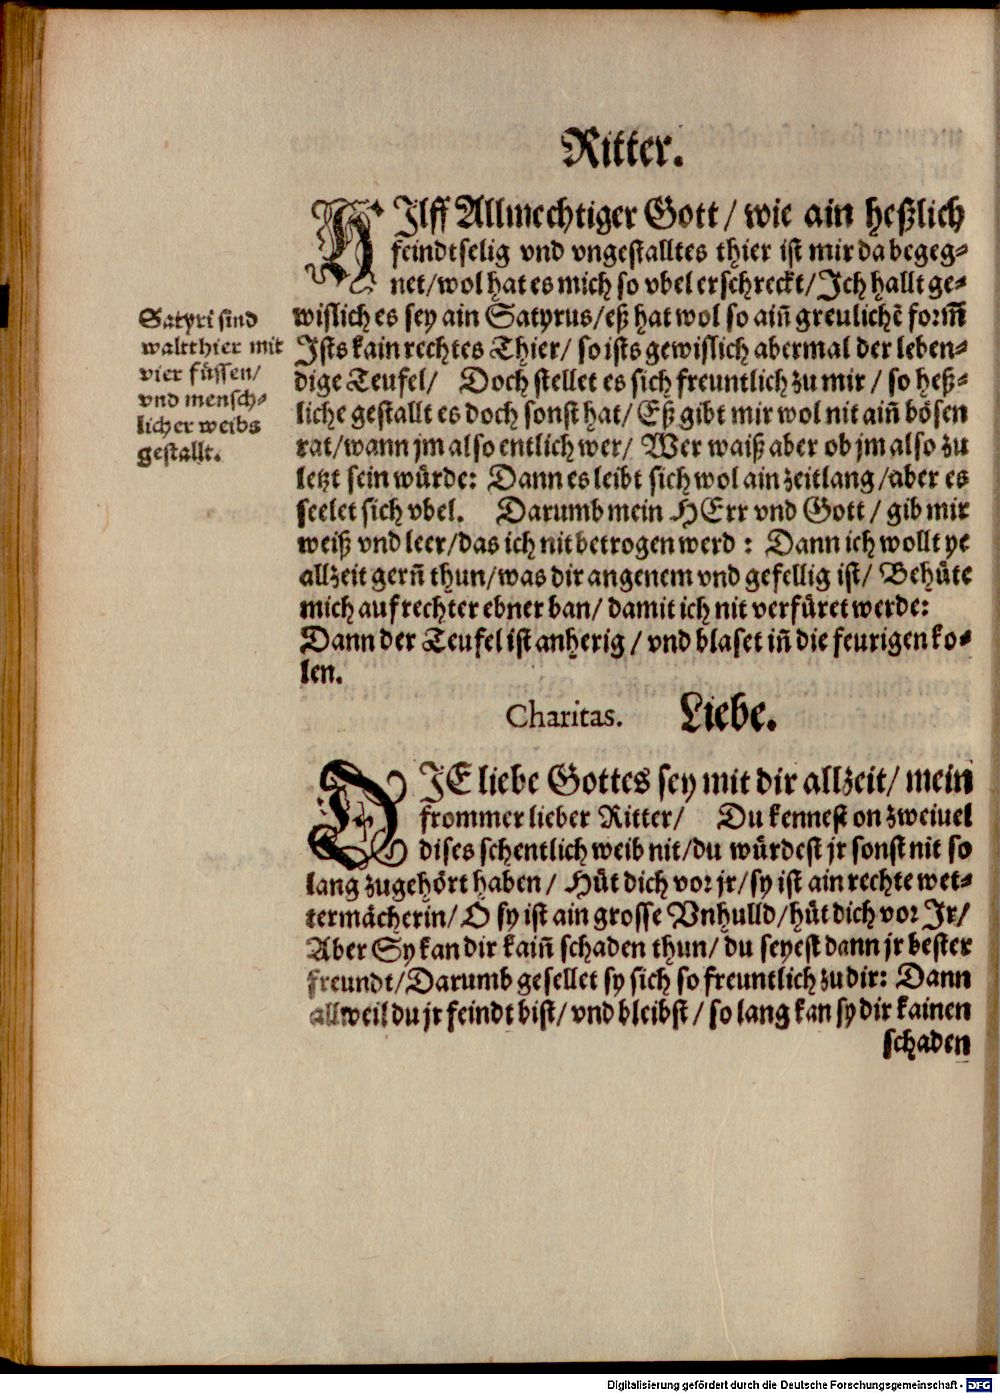 Ritter.
HIlff Allmechtiger Gott / wie ain heßlich
feindtselig vnd vngestalltes thier ist mir da begeg-
net/wol hat es mich so vbel erschreckt/Ich hallt ge-
wislich es sey ain Satyrus/eß hat wol so aiñ greulichẽ form̃
Ists kain rechtes Thier/ so ists gewislich abermal der leben-
dige Teufel/ Doch stellet es sich freuntlich zu mir / so heß-
liche gestallt es doch sonst hat/ Eß gibt mir wol nit aiñ bösen
rat/wann jm also entlich wer/ Wer waiß aber ob jm also zu
letzt sein würde: Dann es leibt sich wol ain zeitlang/aber es
seelet sich vbel. Darumb mein HErr vnd Gott / gib mir
weiß vnd leer/das ich nit betrogen werd : Dann ich wollt ye
allzeit gerñ thun/was dir angenem vnd gefellig ist/ Behüte
mich auf rechter ebner ban/ damit ich nit verfüret werde:
Dann der Teufel ist anherig / vnd blaset iñ die feurigen ko-
len.
Satyri sind
waltthier mit
vier füssen/
vnd mensch-
licher weibs
gestallt.
Charitas. Liebe.
DIE liebe Gottes sey mit dir allzeit/ mein
frommer lieber Ritter/ Du kennest on zweiuel
dises schentlich weib nit/du würdest jr sonst nit so
lang zugehört haben / Hüt dich vor jr/sy ist ain rechte wet-
termächerin/ O sy ist ain grosse Vnhulld/hüt dich vor Jr/
Aber Sy kan dir kaiñ schaden thun/ du seyest dann jr bester
freundt/Darumb gesellet sy sich so freuntlich zu dir: Dann
allweil du jr feindt bist/ vnd bleibst / so lang kan sy dir kainen
schaden
Digitalisierung gefördert durch die Deutsche Forschungsgemeinschaft - DFG